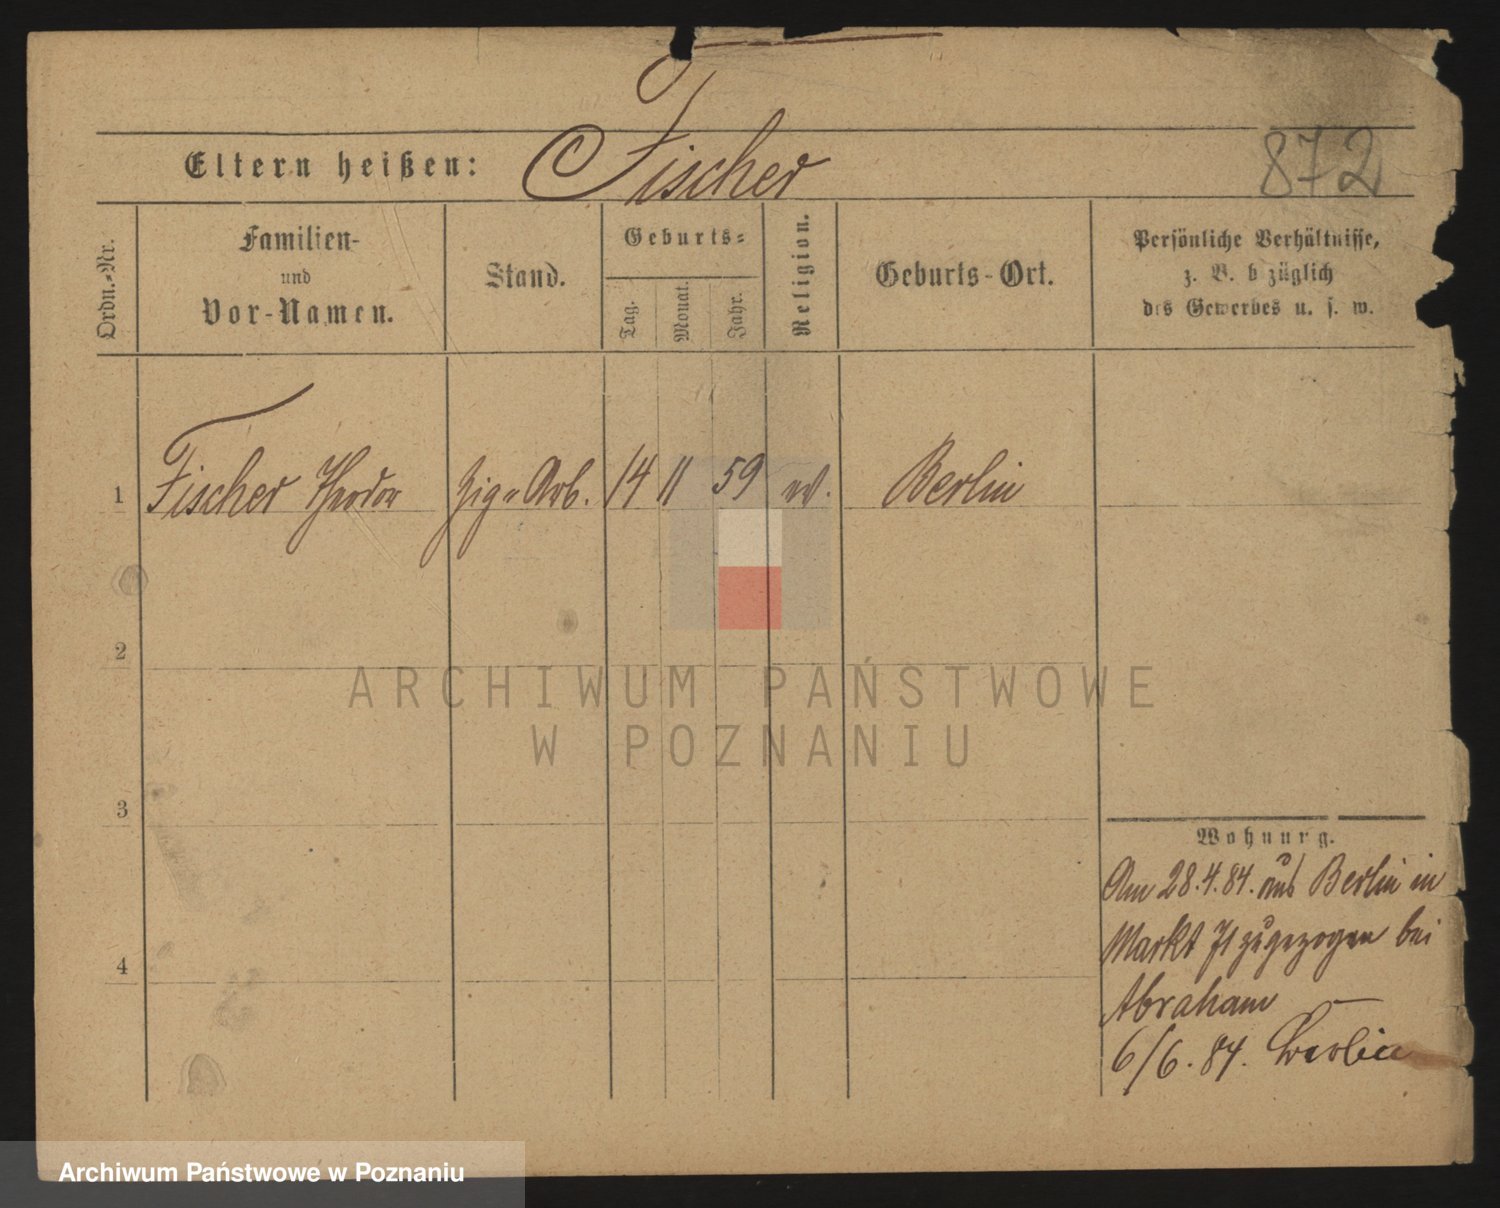 Eltern heißen: Fischer
872
Ordn.-Nr.
Familien-
und
Vor-Namen.
Stand.
Geburts-
Tag.
Monat.
Jahr.
Religion.
Geburts-Ort.
Persönliche Verhältnisse,
z. B. bezüglich
des Gewerbes u. s. w.
1 Fischer Theodor Zig. Arb. 14 11 59 ev. Berlin
2
3
4
Wohnung.
Am 28.4.84. aus Berlin in
Markt zugezogen bei
Abraham
6/6. 84. Berlin
ARCHIWUM PAŃSTWOWE
W POZNANIU
Archiwum Państwowe w Poznaniu